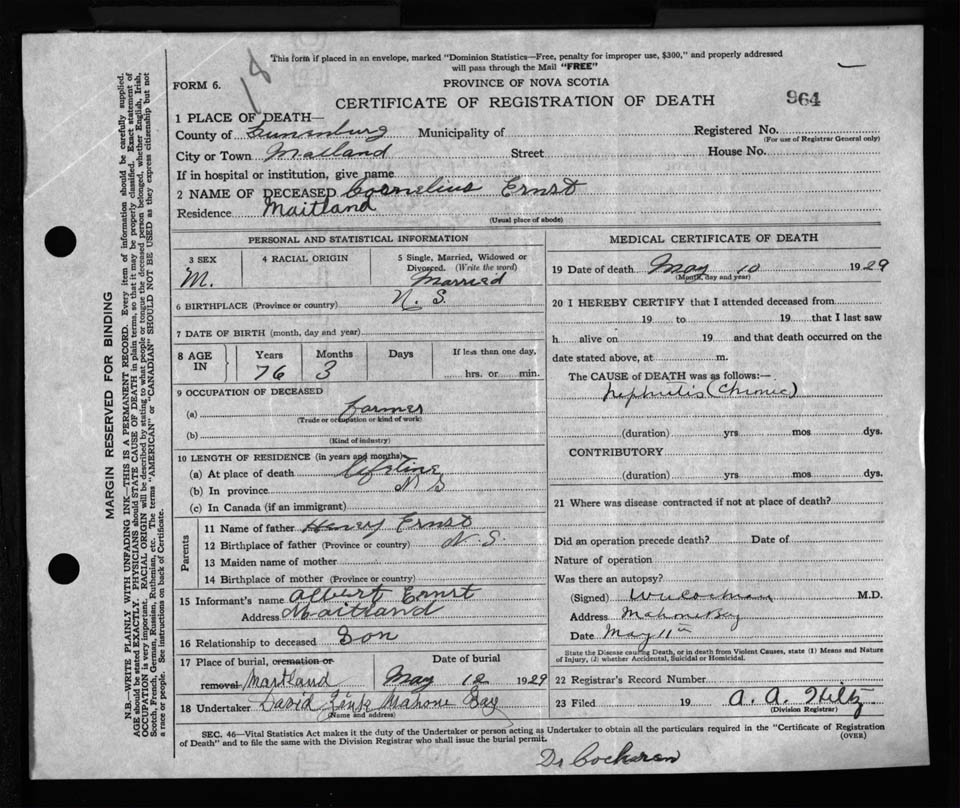 This form if placed in an envelope, marked "Dominion Statistics—Free, penalty for improper use, $300," and properly addressed
will pass through the Mail "FREE"
18
FORM 6.
PROVINCE OF NOVA SCOTIA
CERTIFICATE OF REGISTRATION OF DEATH
964
1 PLACE OF DEATH—
County of Lunenburg Municipality of Registered No.
(For use of Registrar General only)
City or Town Maitland Street House No.
If in hospital or institution, give name
2 NAME OF DECEASED Cornelius Ernst
Residence Maitland
(Usual place of abode)
PERSONAL AND STATISTICAL INFORMATION
3 SEX 4 RACIAL ORIGIN 5 Single, Married, Widowed or
Divorced. (Write the word)
M. Married
6 BIRTHPLACE (Province or country) N. S.
7 DATE OF BIRTH (month, day and year)
8 AGE IN Years Months Days If less than one day,
76 3 hrs. or min.
9 OCCUPATION OF DECEASED
(a) farmer
(Trade or occupation or kind of work)
(b)
(Kind of industry)
10 LENGTH OF RESIDENCE (in years and months)
(a) At place of death lifetime
(b) In province N S
(c) In Canada (if an immigrant)
Parents
11 Name of father Henry Ernst
12 Birthplace of father (Province or country) N. S.
13 Maiden name of mother
14 Birthplace of mother (Province or country)
15 Informant's name Albert Ernst
Address Maitland
16 Relationship to deceased Son
17 Place of burial, cremation or Date of burial
removal Maitland May 12 1929
18 Undertaker David Zink Mahone Bay
(Name and address)
MEDICAL CERTIFICATE OF DEATH
19 Date of death May 10 1929
(Month, day and year)
20 I HEREBY CERTIFY that I attended deceased from
19 to 19 that I last saw
h alive on 19 and that death occurred on the
date stated above, at m.
The CAUSE of DEATH was as follows:—
Nephritis (Chronic)
(duration) yrs mos dys.
CONTRIBUTORY
(duration) yrs mos dys.
21 Where was disease contracted if not at place of death?
Did an operation precede death? Date of
Nature of operation
Was there an autopsy?
(Signed) Cochran M.D.
Address Mahone Bay
Date May 11th
State the Disease causing Death, or in death from Violent Causes, state (1) Means and Nature
of Injury, (2) whether Accidental, Suicidal or Homicidal.
22 Registrar's Record Number
23 Filed 19 A. A. Hiltz
(Division Registrar)
SEC. 46—Vital Statistics Act makes it the duty of the Undertaker or person acting as Undertaker to obtain all the particulars required in the "Certificate of Registration
of Death" and to file the same with the Division Registrar who shall issue the burial permit.
(OVER)
Dr Cochran
MARGIN RESERVED FOR BINDING
N.B.—WRITE PLAINLY WITH UNFADING INK—THIS IS A PERMANENT RECORD. Every item of information should be carefully supplied.
AGE should be stated EXACTLY. PHYSICIANS should STATE CAUSE OF DEATH in plain terms, so that it may be properly classified. Exact statement of
OCCUPATION is very important. RACIAL ORIGIN will be described by stating to what people or tongue the deceased person belonged, whether English, Irish,
Scotch, French, German, Russian, Ruthenian, etc. The terms "AMERICAN" or "CANADIAN" SHOULD NOT BE USED as they express citizenship but not
a race or people. See instructions on back of Certificate.